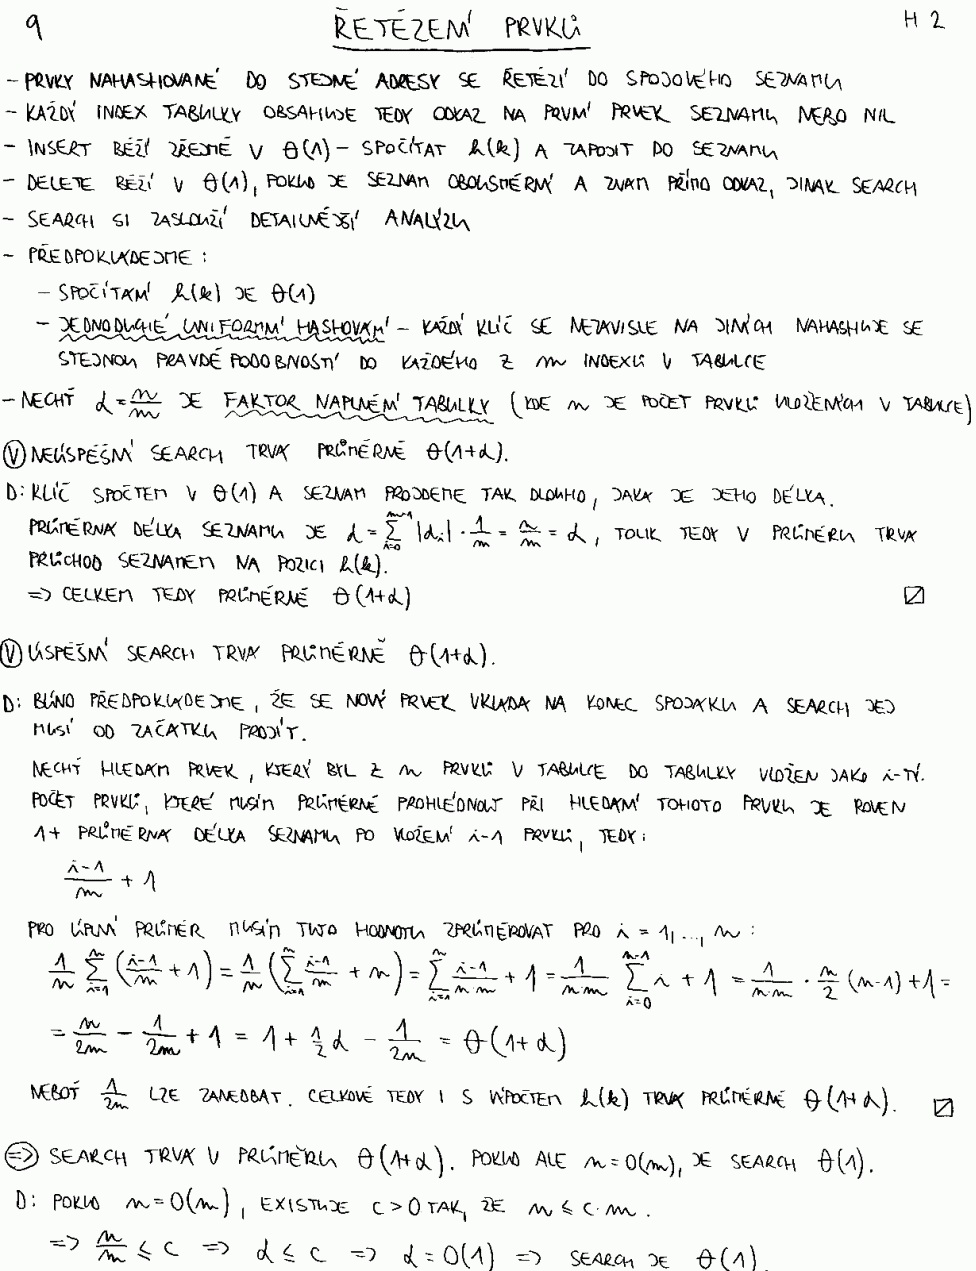 9 ŘETĚZENÍ PRVKŮ H 2
- PRVKY NAHASHOVANÉ DO STEJNÉ ADRESY SE ŘETĚZÍ DO SPOJOVÉHO SEZNAMU
- KAŽDÝ INDEX TABULKY OBSAHUJE TEDY ODKAZ NA PRVNÍ PRVEK SEZNAMU NEBO NIL
- INSERT BĚŽÍ ZŘEJMĚ V Θ(1) - SPOČÍTAT h(k) A ZAPOJIT DO SEZNAMU
- DELETE BĚŽÍ V Θ(1), POKUD JE SEZNAM OBOUSMĚRNÝ A ZNÁM PŘÍMO ODKAZ, JINAK SEARCH
- SEARCH SI ZASLOUŽÍ DETAILNĚJŠÍ ANALÝZU
- PŘEDPOKLÁDEJME :
- SPOČÍTÁNÍ h(k) JE Θ(1)
- JEDNODUCHÉ UNIFORMNÍ HASHOVÁNÍ - KAŽDÝ KLÍČ SE NEZÁVISLE NA JINÝCH NAHASHUJE SE
STEJNOU PRAVDĚPODOBNOSTÍ DO KAŽDÉHO Z m INDEXŮ V TABULCE
- NECHŤ α = n/m JE FAKTOR NAPLNĚNÍ TABULKY (KDE n JE POČET PRVKŮ VLOŽENÝCH V TABULCE)
Ⓥ NEÚSPĚŠNÝ SEARCH TRVÁ PRŮMĚRNĚ Θ(1+α).
D: KLÍČ SPOČTEM V Θ(1) A SEZNAM PROJDEME TAK DLOUHO, JAKÁ JE JEHO DÉLKA.
PRŮMĚRNÁ DÉLKA SEZNAMU JE α = ∑_{i=0}^{m-1} |α_i| · 1/m = n/m = α, TOLIK TEDY V PRŮMĚRU TRVÁ
PRŮCHOD SEZNAMEM NA POZICI h(k).
=> CELKEM TEDY PRŮMĚRNĚ Θ(1+α)
Ⓥ ÚSPĚŠNÝ SEARCH TRVÁ PRŮMĚRNĚ Θ(1+α).
D: BÚNO PŘEDPOKLÁDEJME, ŽE SE NOVÝ PRVEK VKLÁDÁ NA KONEC SPOJÁKU A SEARCH JEJ
MUSÍ OD ZAČÁTKU PROJÍT.
NECHŤ HLEDÁM PRVEK, KTERÝ BYL Z n PRVKŮ V TABULCE DO TABULKY VLOŽEN JAKO i-TÝ.
POČET PRVKŮ, KTERÉ MUSÍM PRŮMĚRNĚ PROHLÉDNOUT PŘI HLEDÁNÍ TOHOTO PRVKU JE ROVEN
1 + PRŮMĚRNÁ DÉLKA SEZNAMU PO VLOŽENÍ i-1 PRVKŮ, TEDY:
(i-1)/m + 1
PRO ÚPLNÝ PRŮMĚR MUSÍM TUTO HODNOTU ZPRŮMĚROVAT PRO i = 1, ..., n :
1/n ∑_{i=1}^{n} ((i-1)/m + 1) = 1/n (∑_{i=1}^{n} (i-1)/m + n) = ∑_{i=1}^{n} (i-1)/(n·m) + 1 = 1/(n·m) ∑_{i=0}^{n-1} i + 1 = 1/(n·m) · n/2 (n-1) + 1 =
= n/2m - 1/2m + 1 = 1 + 1/2 α - 1/2m = Θ(1+α)
NEBOŤ 1/2m LZE ZANEDBAT. CELKOVĚ TEDY I S VÝPOČTEM h(k) TRVÁ PRŮMĚRNĚ Θ(1+α).
(=>) SEARCH TRVÁ V PRŮMĚRU Θ(1+α). POKUD ALE n = O(m), JE SEARCH Θ(1).
D: POKUD n = O(m), EXISTUJE c > 0 TAK, ŽE n ≤ c·m.
=> n/m ≤ c => α ≤ c => α = O(1) => SEARCH JE Θ(1).